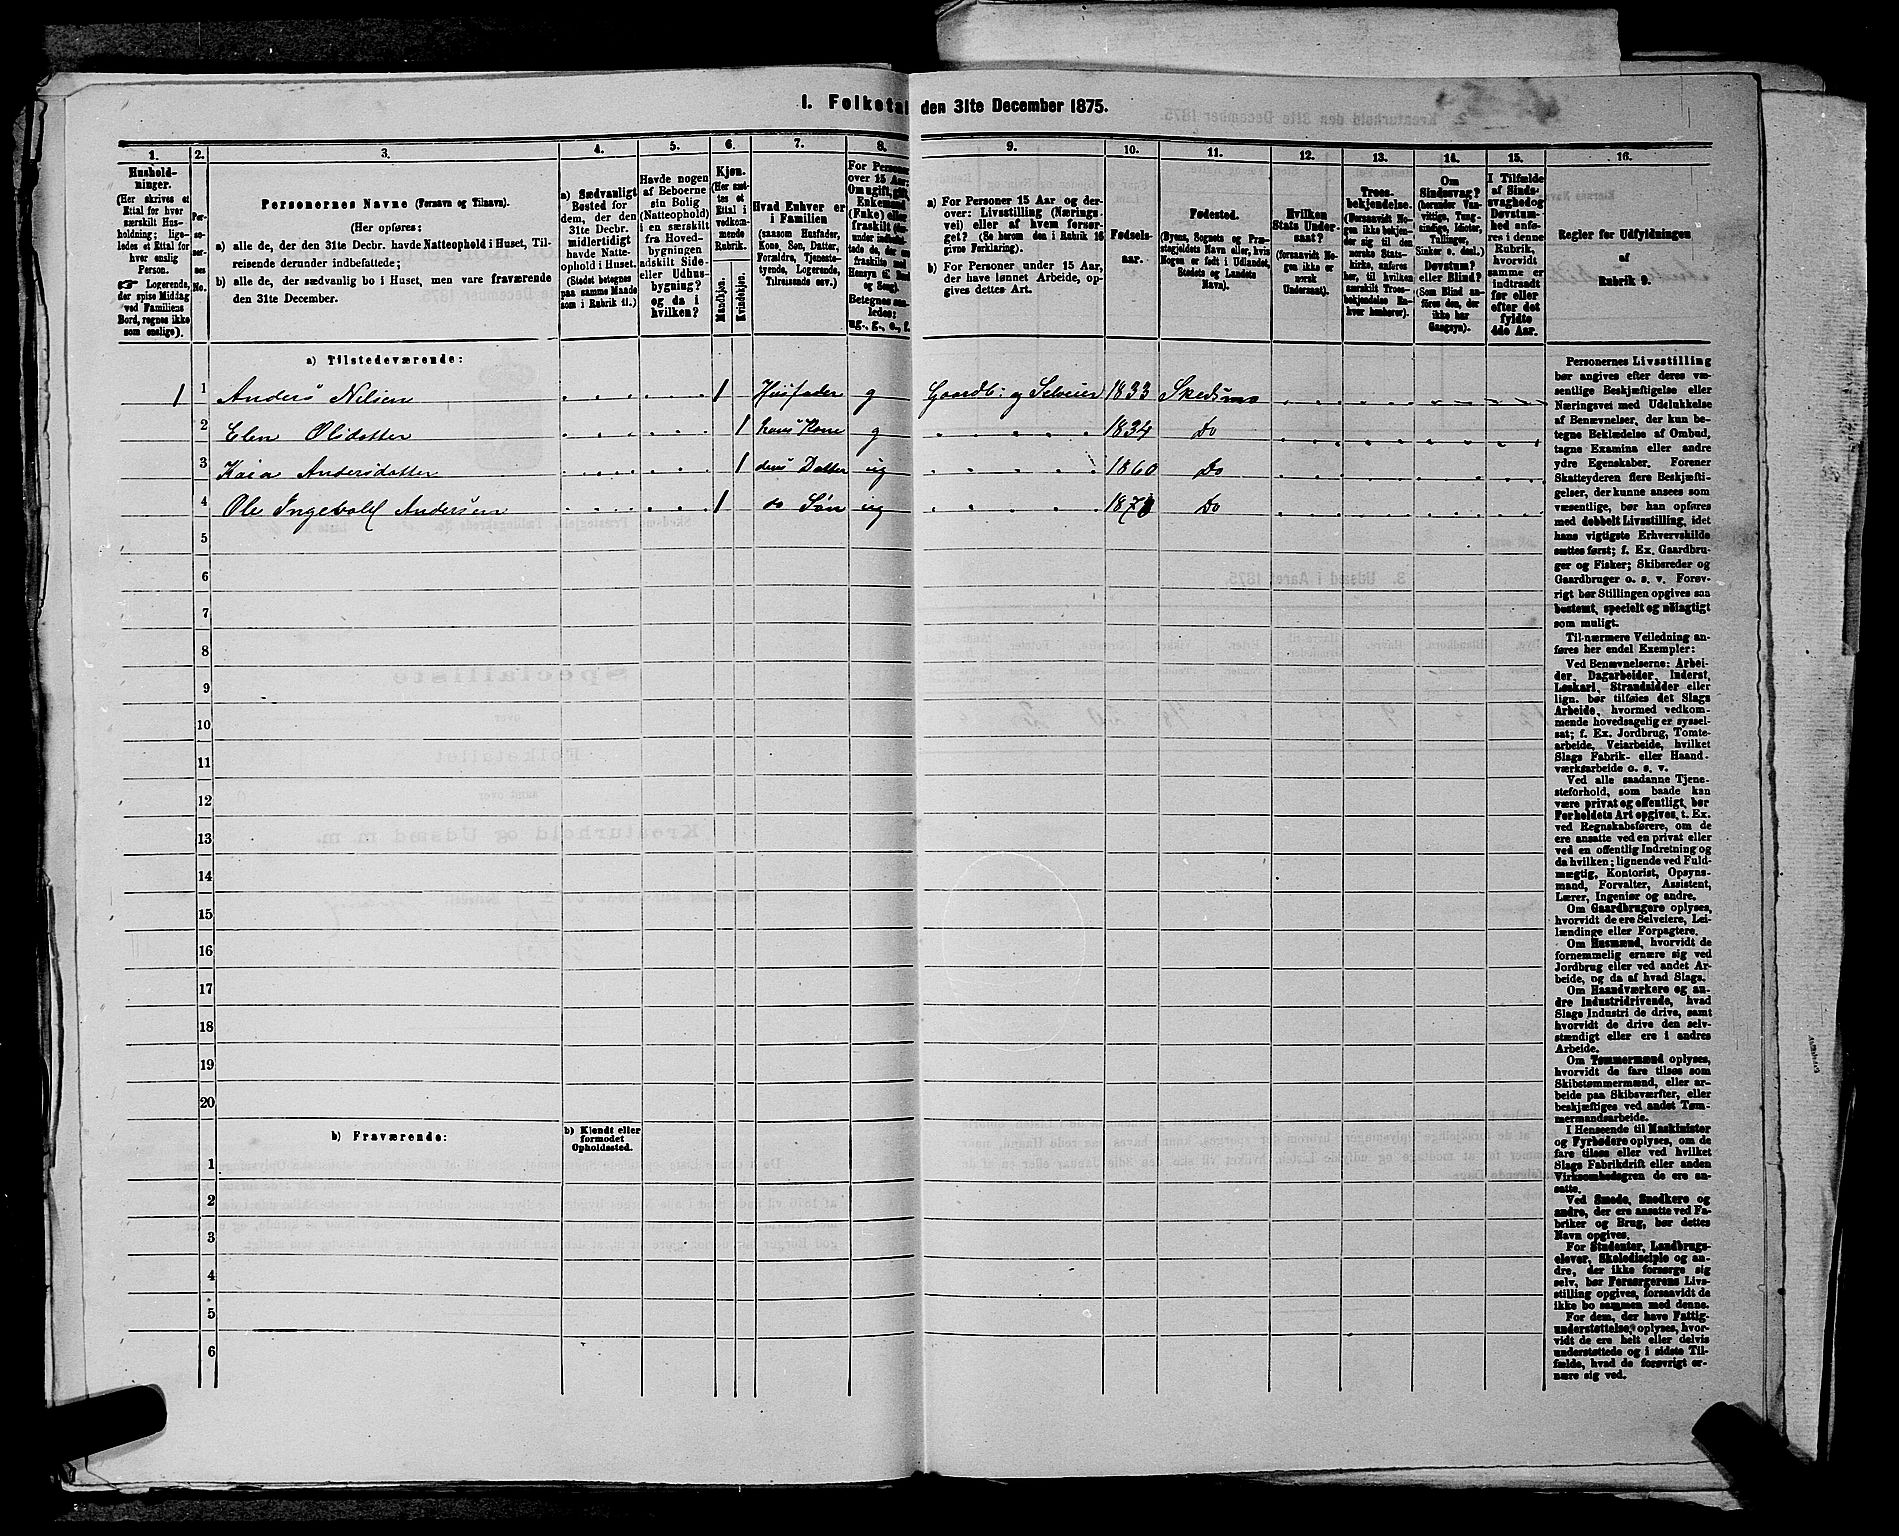 I. Folketal den 31te December 1875.
1. 2. 3. 4. 5. 6. 7. 8. 9. 10. 11. 12. 13. 14. 15. 16.
Husholdninger.
(Her skrives et Ettal for hver særskilt Husholdning; ligeledes et Ettal for hver enslig Person.
☞ Logerende, der spise Middag ved Familiens Bord, regnes ikke som enslige).
Personernes No.
Personernes Navne (Fornavn og Tilnavn).
(Her opføres:
a) alle de, der den 31te Decbr. havde Natteophold i Huset, Tilreisende derunder indbefattede;
b) alle de, der sædvanlig bo i Huset, men vare fraværende den 31te December.
a) Sædvanligt Bosted for dem, der den 31te Decbr. midlertidigt havde Natteophold i Huset. (Stedet betegnes paa samme Maade som i Rubrik 11.)
Havde nogen af Beboerne sin Bolig (Natteophold) i en særskilt fra Hovedbygningen adskilt Side- eller Udhusbygning? og da i hvilken?
Kjøn. (Her sættes et Ettal i vedkommende Rubrik.
Mandkjøn.
Kvindekjøn.
Hvad Enhver er i Familien
(saasom Husfader, Kone, Søn, Datter, Forældre, Tjenestetyende, Logerende, Tilreisende osv.)
For Personer over 15 Aar: Om ugift, gift, Enkemand (Enke) eller fraskilt
Betegnes saaledes: ug., g., e., f.
a) For Personer 15 Aar og derover: Livsstilling (Næringsvei) eller af hvem forsørget? (Se herom den i Rubrik 16 givne Forklaring).
b) For Personer under 15 Aar, der have lønnet Arbeide, opgives dettes Art.
Fødselsaar.
Fødested.
(Byens, Sognets og Præstegjeldets Navn eller, hvis Nogen er født i Udlandet, Stedets og Landets Navn).
Hvilken Stats Undersaat?
(forsaavidt Nogen ikke er norsk Undersaat).
Troesbekjendelse.
(Forsaavidt Nogen ikke bekjender sig til den norske Statskirke, anføres her, til hvilken særskilt Troesbekjendelse Enhver henhører).
Om Sindssvag? (herunder Vanvittige, Tungsindige, Idioter, Tullinger, Sinker o. desl.) Døvstum? eller Blind?
(Som Blind anføres den, der ikke har Gangsyn).
I Tilfælde af Sindssvaghed og Døvstumhed anføres i denne Rubrik, hvorvidt samme er indtraadt før eller efter det fyldte 4de Aar.
Regler for Udfyldningen af Rubrik 9.
a) Tilstedeværende:
1 1 Anders Nilsen 1 Husfader g Gaardb: og Selveier 1833 Skedsmo
2 Elen Olsdatter 1 hans Kone g 1834 Do
3 Kaia Andersdatter 1 deres Datter ug 1860 Do
4 Ole Ingevald Andersen 1 do Søn ug Do
5
6
7
8
9
10
11
12
13
14
15
16
17
18
19
20
b) Fraværende:
b) Kjendt eller formodet Opholdssted.
1
2
3
4
5
6
Personernes Livsstilling
bør angives efter deres væsentlige
Beskjæftigelse eller
Næringsvei med Udelukkelse
af Benævnelser, der kun betegne
Beklædelse af Ombud,
tagne Examina eller andre
ydre Egenskaber. Forener
Skatteyderen flere Beskjæftigelser,
der kunne ansees som
væsentlige, bør han opgives
med dobbelt Livsstilling, idet
hans vigtigste Erhvervskilde
sættes først; f. Ex. Gaardbruger
og Fisker; Skibsreder og
Gaardbruger o. s. v. Forøvrigt
bør Stillingen opgives saa
bestemt, specielt og nøiagtigt
som muligt.
Til nærmere Veiledning anføres
her endel Exempler:
Ved Benævnelserne: Arbeider,
Dagarbeider, Inderst,
Løskarl, Strandsidder eller
lign. bør tilføies det Slags
Arbeide, hvormed vedkommende
hovedsagelig er sysselsat;
f. Ex. Jordbrug, Tomtearbeide,
Veiarbeide, hvilket
Slags Fabrik- eller Haandværksarbeide
o. s. v.
Ved alle saadanne Tjenesteforhold,
som baade kan
være privat og offentligt, bør
Forholdets Art opgives, t. Ex.
ved Regnskabsførere, om de
ere ansatte ved en privat eller
ved en offentlig Indretning og
da hvilken; lignende ved Fuldmægtig,
Kontorist, Opsynsmand,
Forvalter, Assistent,
Lærer, Ingeniør og andre.
Om Gaardbrugere oplyses,
hvorvidt de ere Selveiere, Leilændinge
eller Forpagtere.
Om Husmænd, hvorvidt de
fornemmelig ernære sig ved
Jordbrug eller ved andet Arbeide,
og da af hvad Slags.
Om Haandværkere og andre
Industridrivende, hvad
Slags Industri de drive, samt
hvorvidt de drive den selvstændigt
eller ere i andres
Arbeide.
Om Tømmermænd oplyses,
hvorvidt de fare tilsøs som
Skibstømmermænd, eller arbeide
paa Skibsværfter, eller
beskjæftiges ved andet Tømmermandsarbeide.
I Henseende til Maskinister
og Fyrbødere oplyses, om de
fare tilsøs eller ved hvilket
Slags Fabrikdrift eller anden
Virksomhedsgren de ere ansatte.
Ved Smede, Snedkere og
andre, der ere ansatte ved Fabriker
og Brug, bør dettes
Navn opgives.
For Studenter, Landbrugselever,
Skoledisciple og andre,
der ikke forsørge sig
selv, bør Forsørgerens Livsstilling
opgives, forsaavidt de
ikke bo sammen med denne.
For dem, der have Fattigunderstøttelse,
oplyses, hvorvidt
de ere helt eller delvis
understøttede og i sidste Tilfælde,
hvad de forøvrigt ernære
sig ved.